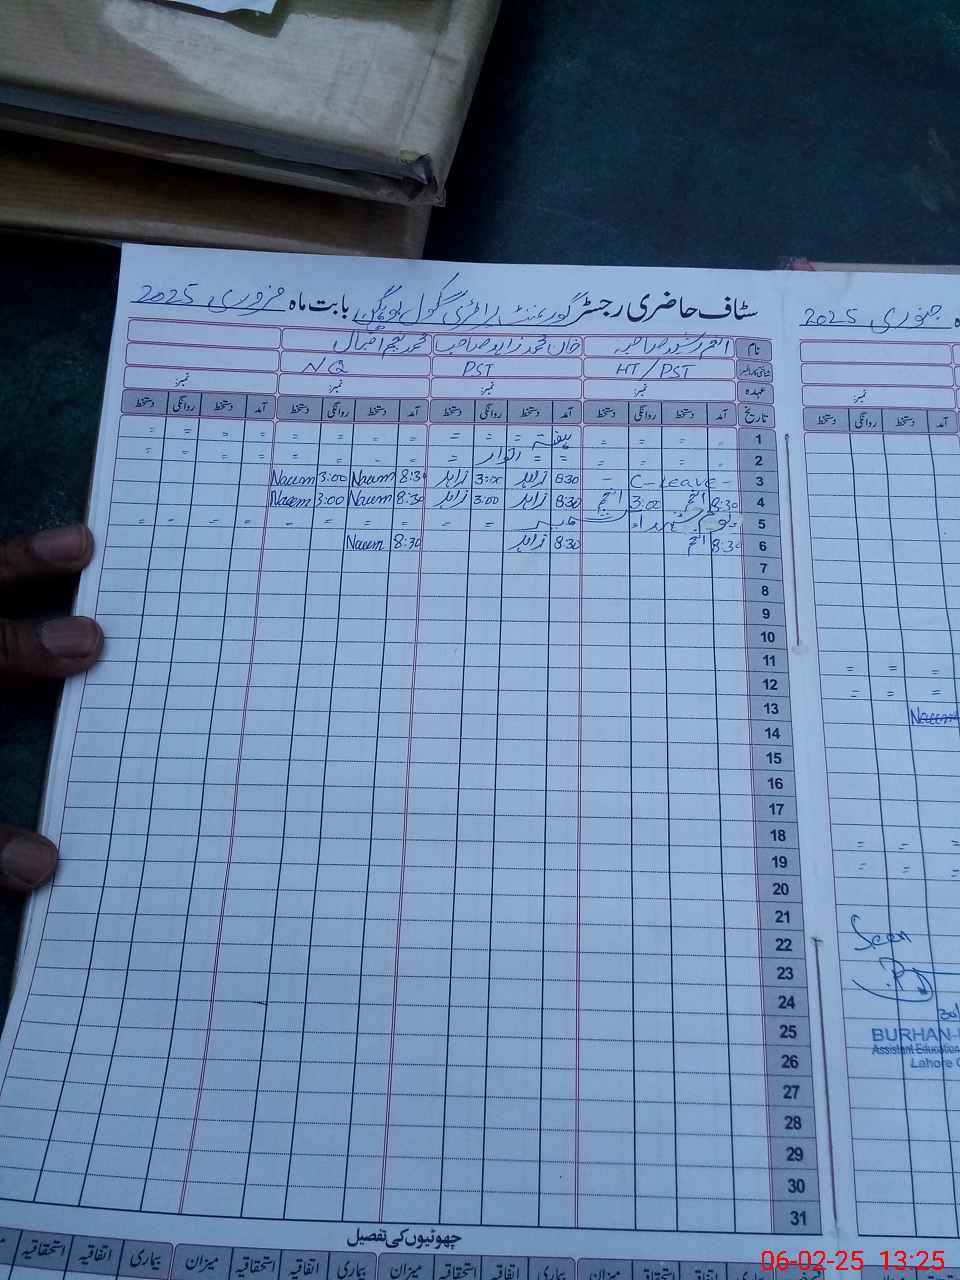 سٹاف حاضری رجسٹر گورنمنٹ پرائمری سکول بابت ماہ فروری 2025
نام انعم رشید صاحبہ خان محمد زاہد صاحب محمد نعیم اقبال
HT/PST PST NQ
عہدہ نمبر: نمبر: نمبر: نمبر:
تاریخ آمد دستخط روانگی دستخط آمد دستخط روانگی دستخط آمد دستخط روانگی دستخط آمد دستخط روانگی دستخط
1 = = = = ہفتہ = = = = = = = = = =
2 = = = = = = اتوار = = = = = = = = =
3 - C-Leave - 8:30 زاہد 3:00 زاہد 8:30 Naeem 3:00 Naeem
4 8:30 انعم 3:00 انعم 8:30 زاہد 3:00 زاہد 8:30 Naeem 3:00 Naeem
5 = = = = = = = = = =
6 8:30 انعم 8:30 زاہد 8:30 Naeem
7
8
9
10
11
12
13
14
15
16
17
18
19
20
21
22
23
24
25
26
27
28
29
30
31
چھوٹیوں کی تفصیل
استحقاقیہ اتفاقیہ بیماری میزان استحقاقیہ اتفاقیہ بیماری میزان استحقاقیہ اتفاقیہ بیماری میزان استحقاقیہ
جنوری 2025
نمبر:
آمد دستخط روانگی دستخط
= = =
= = =
Naeem
= = =
= = =
Seen
BURHAN-
Assistant Education
Lahore
06-02-25 13:25